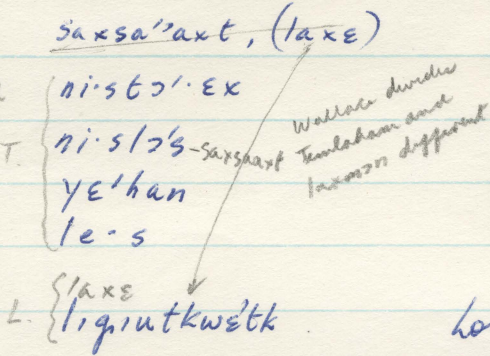 saxsa''axt, (laxɛ)
ni·stɔ'·ɛx
ni·slɔ's-saxsaaxt
T.
yɛ'han
le·s
Wallace divides
Temlaham and
laxmɔn different
'axɛ
L.